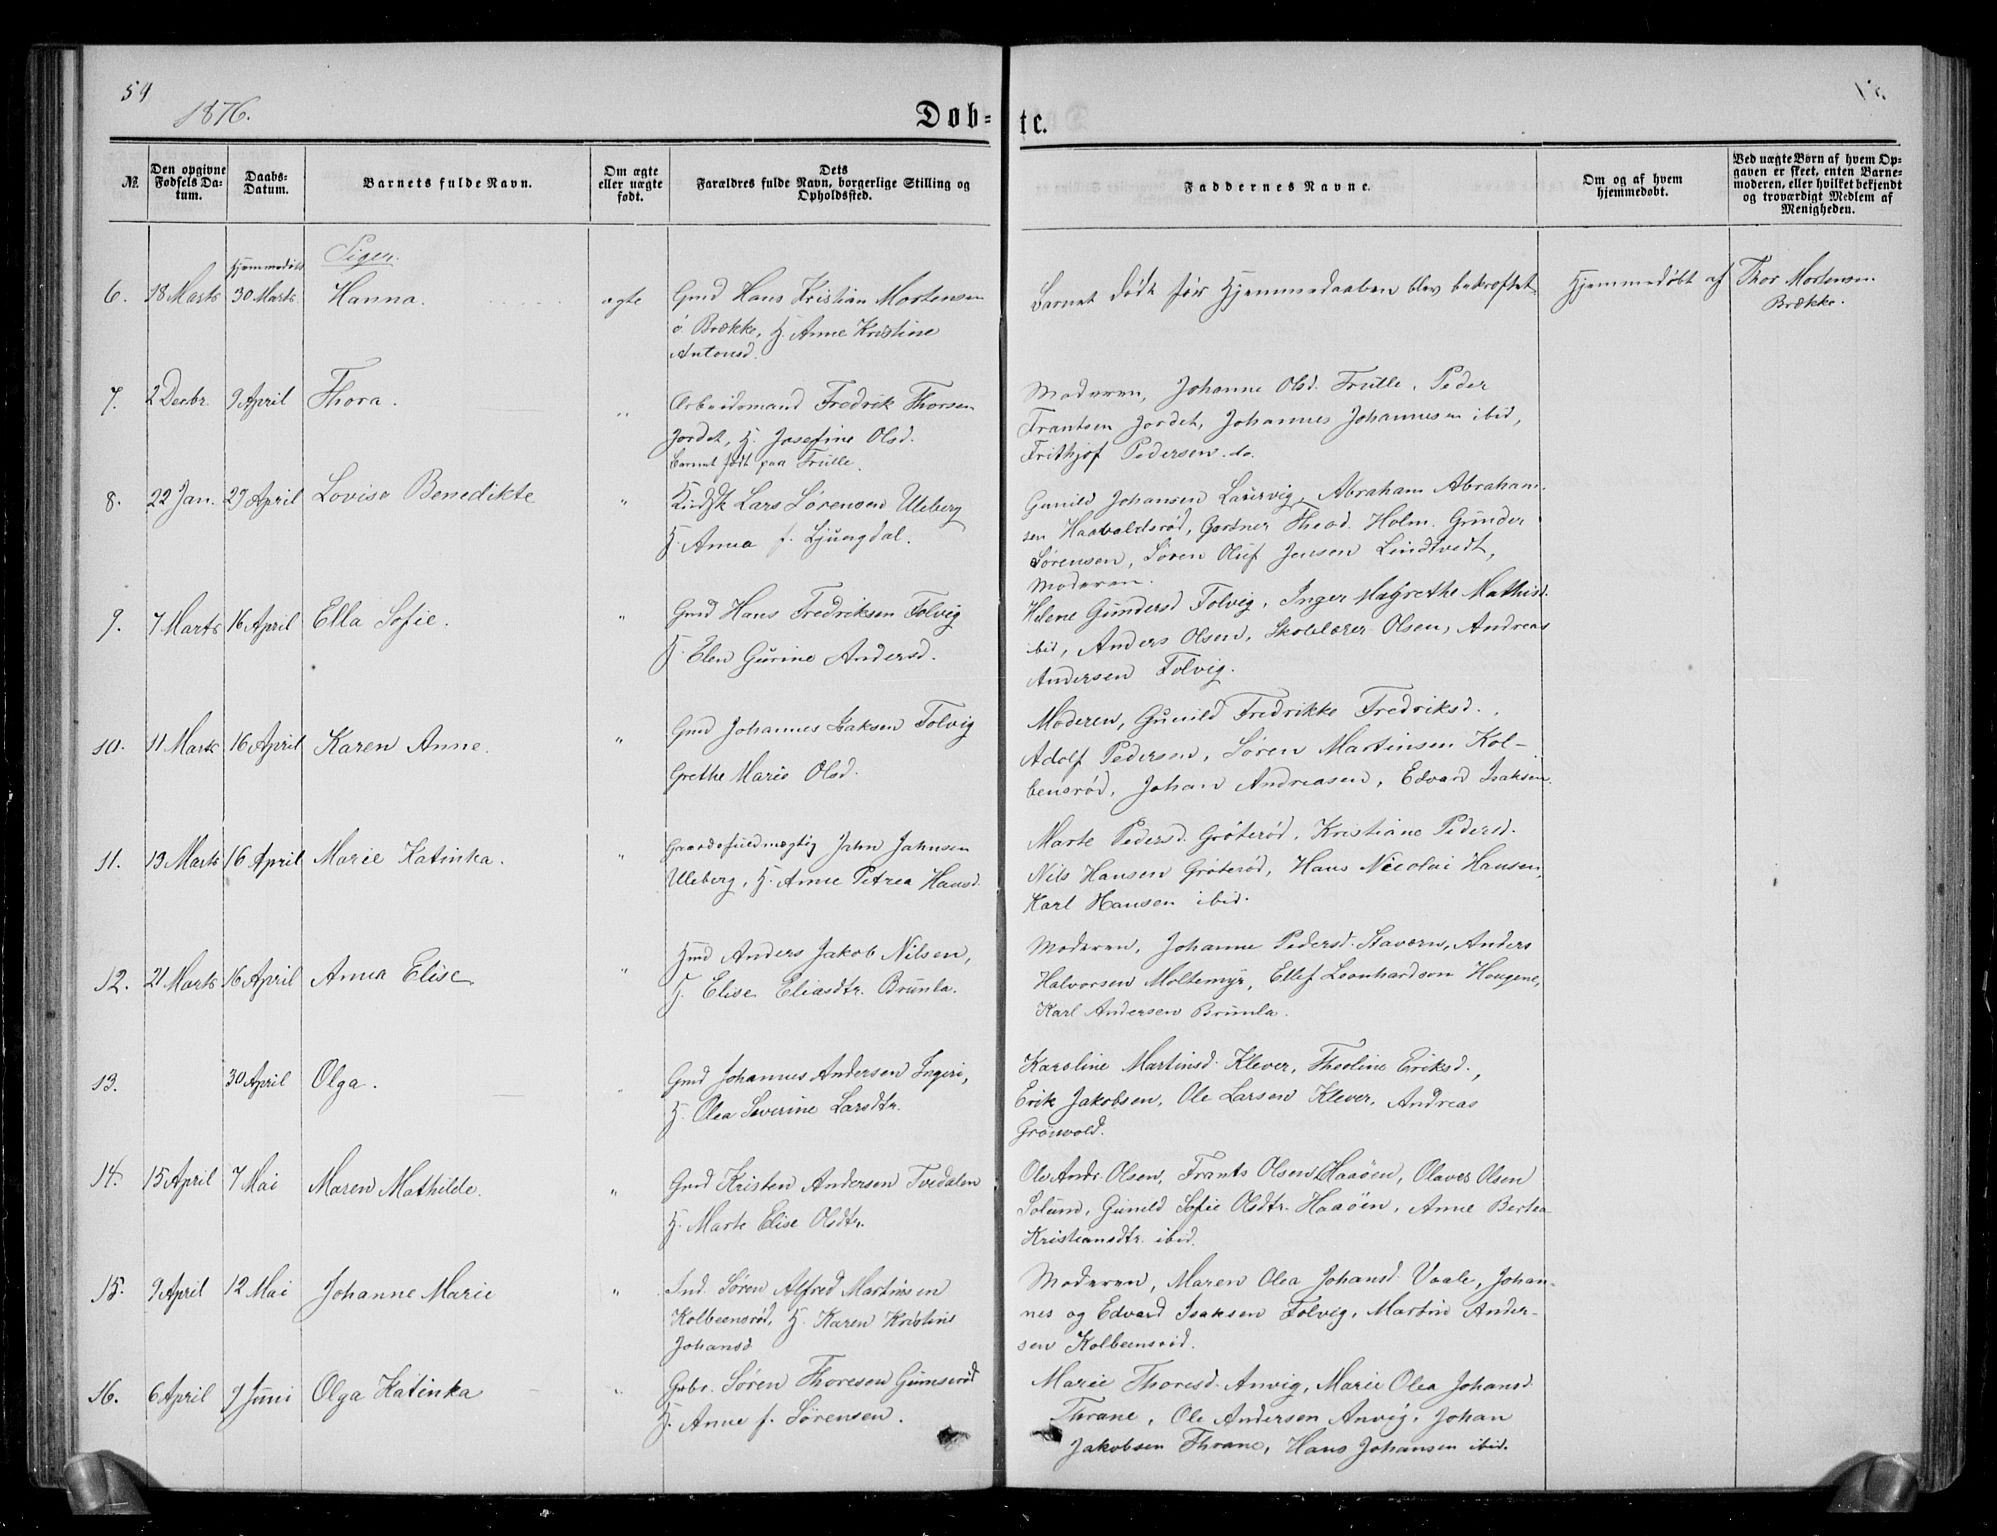 54
1876.
Døb-
te.
№.
Den opgivne Fødsels Datum.
Daabs-Datum.
Barnets fulde Navn.
Om ægte eller uægte født.
Dets Forældres fulde Navn, borgerlige Stilling og Opholdssted.
Faddernes Navne.
Om og af hvem hjemmedøbt.
Ved uægte Børn af hvem Opgaven er skeet, enten Barnemoderen, eller hvilket bekjendt og troværdigt Medlem af Menigheden.
Piger.
Hjemmedøbt
6. 18 Marts 30 Marts Hanna. ægte Gmd Hans Kristian Mortensen
Brække, H. Anne Kristine
Antonsd.
Barnet døde før Hjemmedaaben blev bekræftet. Hjemmedøbt af Thor Mortensen
Brække.
7. 2 Decbr. 9 April Thora. " Arbeidsmand Fredrik Thorsen
Jordet, H. Josefine Olsd.
Barnet født paa Trulle.
Moderen, Johanne Olsd. Trulle, Peder
Frantsen Jordet, Johannes Johannesen ibid,
Frithjof Pedersen do.
8. 22 Jan. 27 April Lovise Benedikte " Lars Sørensen Uleberg
H. Anna f. Ljungdal.
Gunild Johansen Laurvig, Abraham Abraham-
sen Haavaldsrød, Gartner Theod. Holm. Gunder
Sørensen, Søren Oluf Jensen Lindtvedt,
Moderen.
9. 7 Marts 16 April Ella Sofie. " Gmd Hans Fredriksen Tolvig
H. Elen Gurine Andersd.
Helene Gundersd Tolvig, Inger Magrethe Mathisd.
ibid, Anders Olsen, Skolelærer Olsen, Andreas
Andersen Tolvig.
10. 11 Marts 16 April Karen Anne. " Gmd Johannes Isaksen Tolvig
Grethe Marie Olsd.
Moderen, Gunild Fredrikke Fredriksd.,
Adolf Pedersen, Søren Martinsen Kol-
bensrød, Johan Andreasen, Edvard Isaksen.
11. 13 Marts 16 April Marie Katinka. " Gaardsfuldmægtig Jahn Jahnsen
Uleberg, H. Anne Petrea Hansd.
Marte Pedersd. Grøterød, Kristiane Pedersd.
Nils Hansen Grøterød, Hans Nicolai Hansen,
Karl Hansen ibid.
12. 21 Marts 16 April Anna Elise " Hmd Anders Jakob Nilsen,
H. Elise Eliasdtr. Brunla.
Moderen, Johanne Pedersd. Stavern, Anders
Halvorsen Moltemyr, Ellef Leonhardsen Hougene,
Karl Andersen Brunla.
13. 30 April Olga. " Gmd Johannes Andersen Ingeri,
H. Olea Severine Larsdtr.
Karoline Martinsd. Klever, Theoline Eriksd.,
Erik Jakobsen, Ole Larsen Klever, Andreas
Grønvold.
14. 15 April 7 Mai Maren Mathilde. " Gmd Kristen Andersen Tvedalen
H. Marte Elise Olsdtr.
Ole Andr. Olsen, Frants Olsen Haaøen, Olaves Olsen
Solund, Gunild Sofie Olsdtr. Haaøen, Anne Bertea
Kristiansdtr. ibid.
15. 9 April 12 Mai Johanne Marie " Ind. Søren Alfred Martinsen
Kolbeensrød, H. Karen Kristine
Johansd
Moderen, Maren Olea Johansd. Vaale, Johan-
nes og Edvard Isaksen Tolvig, Martin Ander-
sen Kolbeensrød.
16. 6 April 7 Juni Olga Katinka " Gbr. Søren Thoresen Gumserød
H. Anne f. Sørensen.
Marie Thoresd. Anvig, Marie Olea Johansd.
Thrane, Ole Andersen Anvig, Johan
Jakobsen Thrane, Hans Johansen ibid.